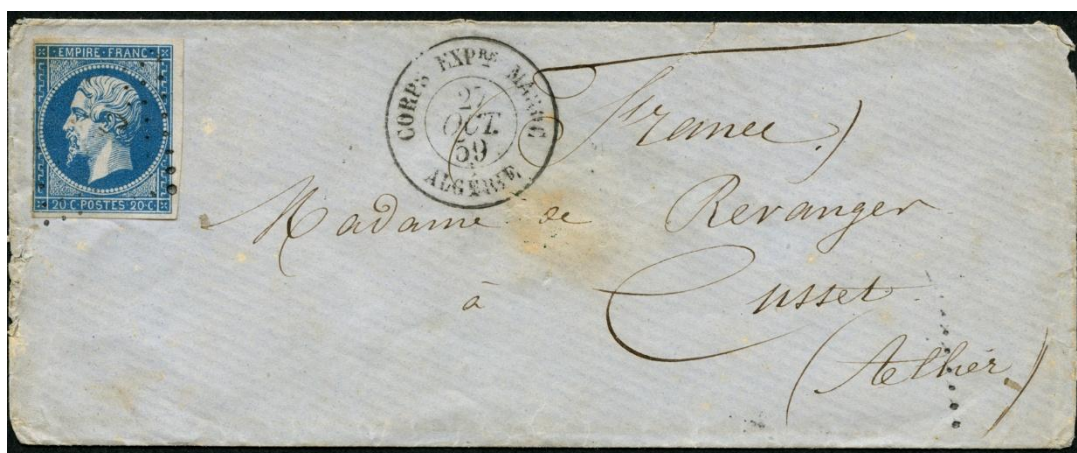 EMPIRE FRANC
20 C POSTES 20 C
CORPS EXPRE MAROC
OCT.
59
ALGÉRIE
France)
Madame de Revanger
à Cusset
(Allier)